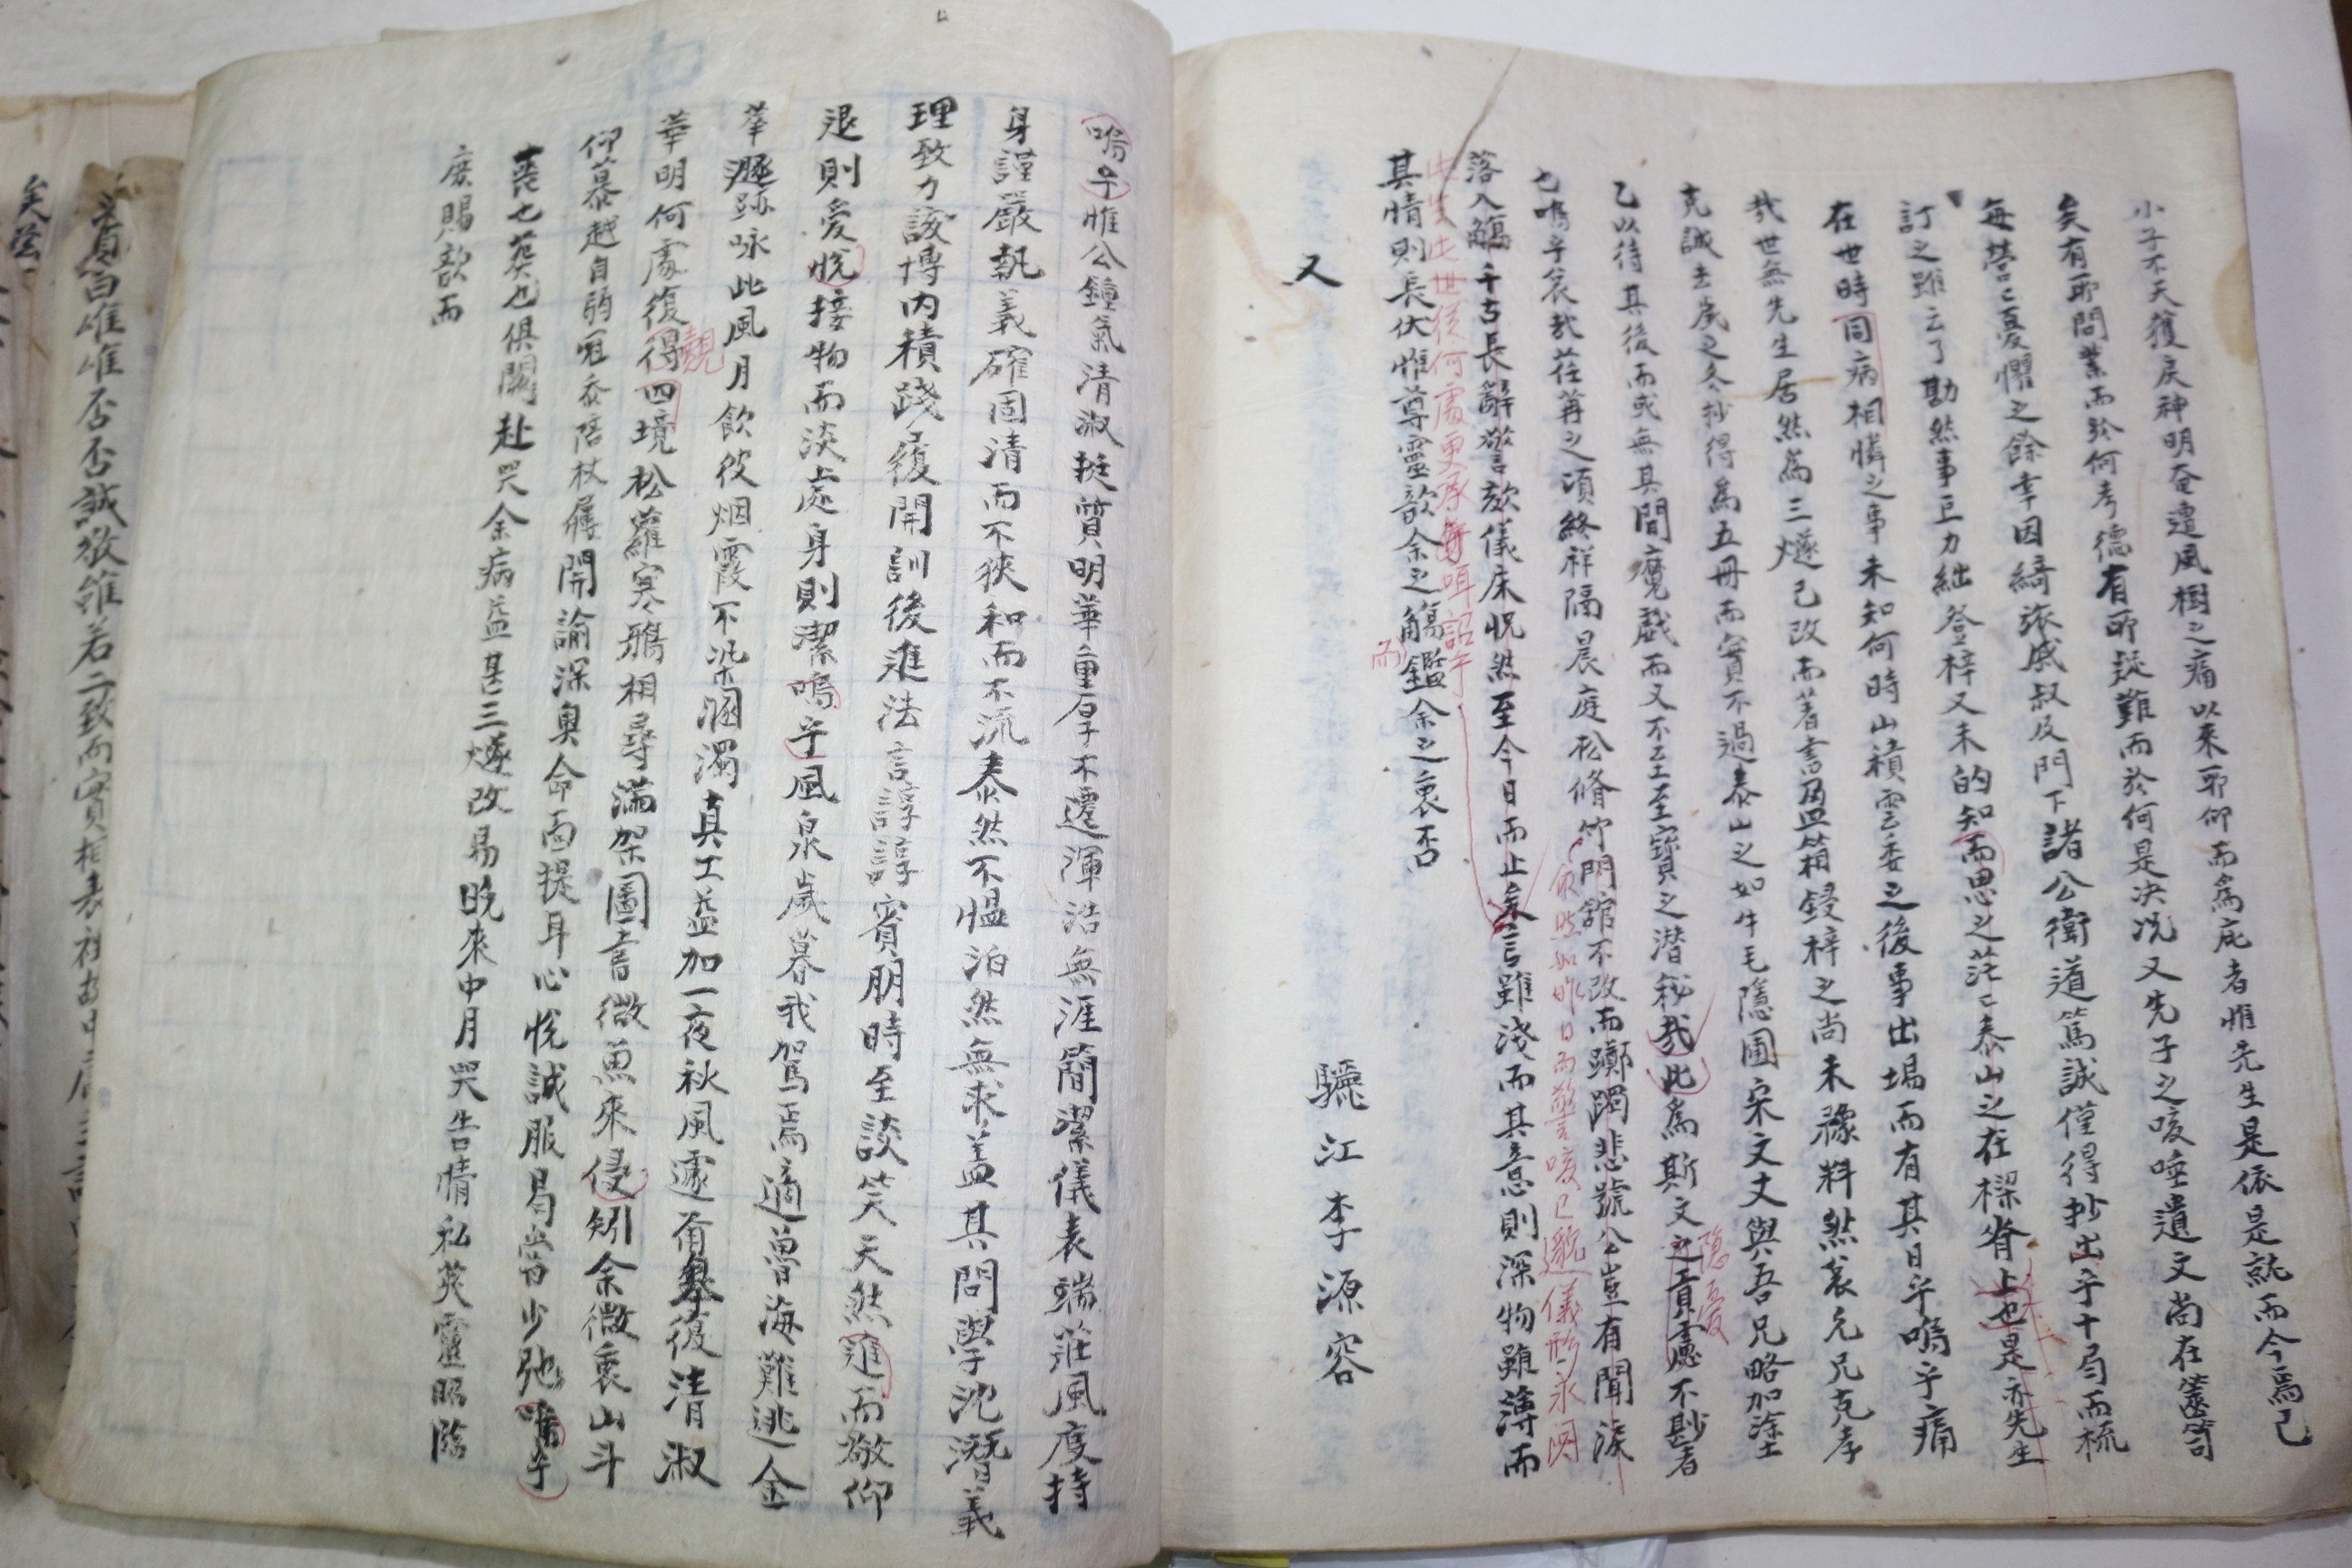 小子不天獲戾神明奄遭風樹之痛以來耶仰而爲庇者惟先生是依是就而今焉已
矣有耶問業而於何考德有耶疑難而於何是决况又先子之咳唾遺文尚在篋笥
每營〻憂懼之餘幸因綺泒戚叔及門下諸公衛道篤誠僅得抄出乎十局而梳
訂之雖云了勘然事巨力絀登梓又未的知而思之茫〻泰山之在樑脊上也是亦先生
在世時同病相憐之事未知何時山積雲委之後事出場而有其日乎嗚乎痛
哉世無先生居然爲三燧已改而著書盈箱鋟梓之尚未豫料然哀允兄克孝
克誠去歲之冬抄得爲五冊而實不過泰山之如牛毛隱圃宋文丈與吾兄略加塗
乙以待其後而或無其間魔戲而又不至至寶之潜秘哉此爲斯文之責慮不尠者
隱憂
也嗚乎哀哉荏苒之頃終祥隔晨庭松脩竹門舘不改而躑躅悲號公豈有聞淚
依然如昨日而警咳已邈儀形永閟
落入觴千古長辭警欬儀床怳然至今日而止矣言雖淺而其意則深物雖薄而
此生此世從何處更承耳詔乎
其情則長伏惟尊靈歆余之觴鑑余之衷否
而
又
驪江李源容
嗚乎惟公鐘氣清淑挺質明華重厚不遷渾浩無涯簡潔儀表端莊風度持
身謹嚴執義確固清而不狹和而不流泰然不慍泊然無求盖其問學沈潛義
理致力該博内積踐履開訓後進法言諄諄賓朋時至談笑天然進而敬仰
退則爱悅接物而淡處身則潔嗚乎風泉歲暮我駕焉適魯海難逃金
華遯跡咏此風月飮彼烟霞不染溷濁真工益加一夜秋風遽爾復清淑
華明何處復得四境松蘿寒鴉相尋滿架圖書微魚來侵矧余微衷山斗
覩
仰慕越自弱冠忝陪杖屨開諭深奥命面提耳心悅誠服曷嘗少弛嗚乎
喪也葬也俱闕赴哭余病益甚三燧改易晩來中月哭告情私英靈昭臨
庶賜歆而
賁皆唯唯否否誠敬雖若二致而實相表裡故中庸
矣